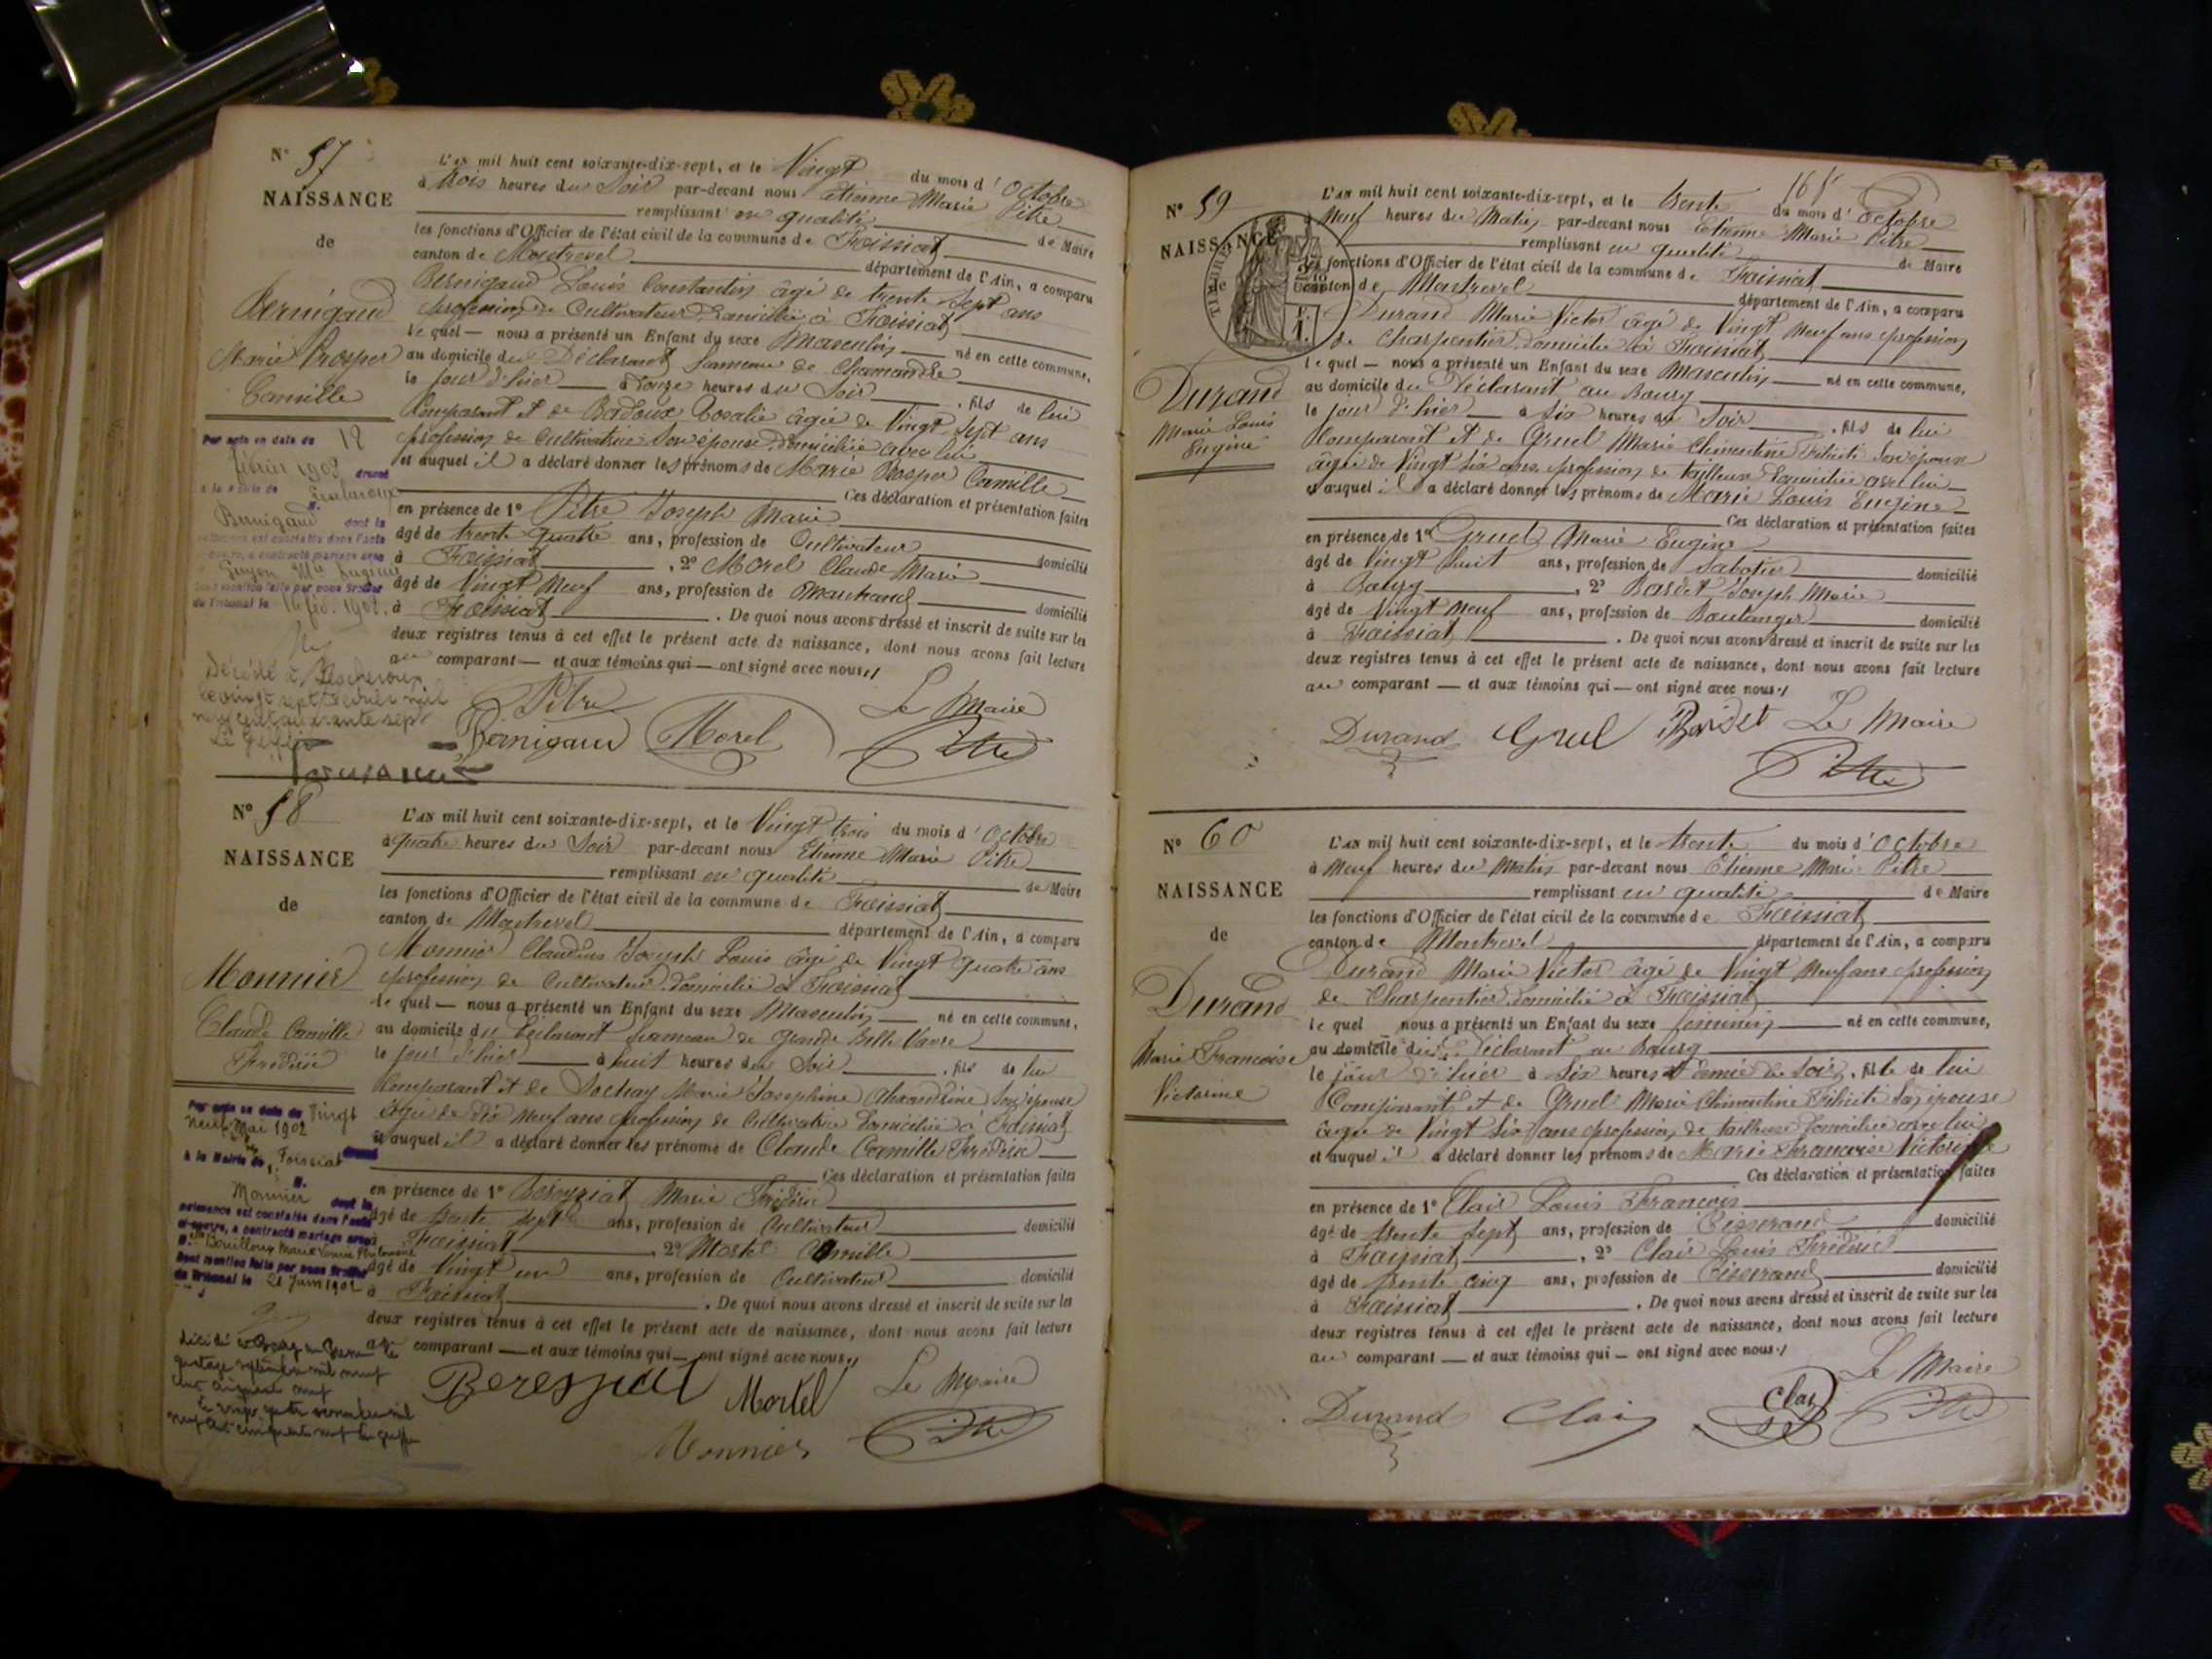 N° 57
NAISSANCE
de
Bernigaud
Marie Prosper
Camille
Par acte en date du 12
février 1902 dressé
à la Mairie de
M.
Bernigaud dont la
naissance est constatée dans l'acte
ci-contre, a contracté mariage avec
Mie Eugénie
Dont mention faite par nous Greffier
du Tribunal le 16 fév. 1902.
Décédé à Lescheroux
le vingt sept février mil
neuf cent quarante sept
Le Greffier
L'AN mil huit cent soixante-dix-sept, et le Vingt du mois d'Octobre
à trois heures du Soir par-devant nous Etienne Marie Pitre
remplissant en qualité de Maire
les fonctions d'Officier de l'état civil de la commune de Foissiat
canton de Montrevel département de l'Ain, a comparu
Bernigaud Louis Constantin âgé de trente Sept ans
profession de Cultivateur domicilié à Foissiat
le quel — nous a présenté un Enfant du sexe Masculin — né en cette commune,
au domicile du Déclarant hameau de Chamandre
le jour d'hier — à onze heures du Soir . fils de lui
Comparant et de Bodoux Rosalie âgée de Vingt Sept ans
profession de Cultivatrice Son épouse domiciliée avec lui
et auquel il a déclaré donner les prénoms de Marie Prosper Camille
Ces déclaration et présentation faites
en présence de 1° Pitre Joseph Marie
âgé de trente quatre ans, profession de Cultivateur domicilié
à Foissiat , 2° Morel Claude Marie
âgé de Vingt Neuf ans, profession de Marchand domicilié
à Foissiat . De quoi nous avons dressé et inscrit de suite sur les
deux registres tenus à cet effet le présent acte de naissance, dont nous avons fait lecture
au comparant — et aux témoins qui — ont signé avec nous
Pitre Le Maire
Bernigaud Morel Pitre
N° 58
NAISSANCE
de
Monnier
Claude Camille
Frédéric
Par acte en date du Vingt
neuf Mai 1902
à la Mairie de Foissiat
M.
Monnier dont la
naissance est constatée dans l'acte
ci-contre, a contracté mariage avec
Bouilloux Marie Louise Phylomène
Dont mention faite par nous Greffier
du Tribunal le 21 Juin 1902
décédé à Bourg en Bresse le
quatorze septembre mil neuf
cent cinquante neuf
Le vingt quatre novembre mil
neuf cent cinquante neuf Le greffier
L'AN mil huit cent soixante-dix-sept, et le Vingt trois du mois d'Octobre
à quatre heures du Soir par-devant nous Etienne Marie Pitre
remplissant en qualité de Maire
les fonctions d'Officier de l'état civil de la commune de Foissiat
canton de Montrevel département de l'Ain, a comparu
Monnier Claudius Joseph Louis âgé de Vingt quatre ans
profession de Cultivateur domicilié à Foissiat
le quel — nous a présenté un Enfant du sexe Masculin — né en cette commune,
au domicile du Déclarant hameau de Grande Belle Vavre
le jour d'hier à huit heures du Soir . fils de lui
Comparant et de Sochay Marie Josephine Alexandrine Son épouse
âgée de dix neuf ans profession de Cultivatrice domiciliée à Foissiat
et auquel il a déclaré donner les prénoms de Claude Camille Frédéric
Ces déclaration et présentation faites
en présence de 1° Marie Frédéric
âgé de trente sept ans, profession de Cultivateur domicilié
à Foissiat , 2° Mortel Camille
âgé de Vingt un ans, profession de Cultivateur domicilié
à Foissiat . De quoi nous avons dressé et inscrit de suite sur les
deux registres tenus à cet effet le présent acte de naissance, dont nous avons fait lecture
au comparant — et aux témoins qui — ont signé avec nous
Mortel Le Maire
Monnier Pitre
165
N° 59
NAISSANCE
de
Durand
Marie Louis
Eugène
L'AN mil huit cent soixante-dix-sept, et le trente du mois d'Octobre
Neuf heures du Matin par-devant nous Etienne Marie Pitre
remplissant en qualité de Maire
les fonctions d'Officier de l'état civil de la commune de Foissiat
canton de Montrevel département de l'Ain, a comparu
Durand Marie Victor âgé de Vingt Neuf ans profession
de Charpentier domicilié à Foissiat
le quel — nous a présenté un Enfant du sexe Masculin — né en cette commune,
au domicile du Déclarant au Bourg
le jour d'hier — à six heures du Soir . fils de lui
Comparant et de Gruel Marie Clémentine Félicité Son épouse
âgée de Vingt Six ans profession de tailleuse domiciliée avec lui
et auquel il a déclaré donner les prénoms de Marie Louis Eugène
Ces déclaration et présentation faites
en présence de 1° Gruel Marie Eugène
âgé de Vingt huit ans, profession de Sabotier domicilié
à Bourg , 2° Bardet Joseph Marie
âgé de Vingt Neuf ans, profession de Boulanger domicilié
à Foissiat . De quoi nous avons dressé et inscrit de suite sur les
deux registres tenus à cet effet le présent acte de naissance, dont nous avons fait lecture
au comparant — et aux témoins qui — ont signé avec nous
Durand Gruel Bardet Le Maire
Pitre
N° 60
NAISSANCE
de
Durand
Marie Francoise
Victorine
L'AN mil huit cent soixante-dix-sept, et le trente du mois d'Octobre
à Neuf heures du Matin par-devant nous Etienne Marie Pitre
remplissant en qualité de Maire
les fonctions d'Officier de l'état civil de la commune de Foissiat
canton de Montrevel département de l'Ain, a comparu
Durand Marie Victor âgé de Vingt Neuf ans profession
de Charpentier domicilié à Foissiat
le quel nous a présenté un Enfant du sexe féminin — né en cette commune,
au domicile du Déclarant au Bourg
le jour d'hier à Six heures et demie du Soir . fille de lui
Comparant et de Gruel Marie Clémentine Félicité Son épouse
âgée de Vingt Six ans profession de tailleuse domiciliée avec lui
et auquel il a déclaré donner les prénoms de Marie Francoise Victorine
Ces déclaration et présentation faites
en présence de 1° Clair Louis Francois
âgé de trente Sept ans, profession de Tisserand domicilié
à Foissiat , 2° Clair Louis Frédéric
âgé de trente cinq ans, profession de Tisserand domicilié
à Foissiat . De quoi nous avons dressé et inscrit de suite sur les
deux registres tenus à cet effet le présent acte de naissance, dont nous avons fait lecture
au comparant — et aux témoins qui — ont signé avec nous
Le Maire
Durand Clair Clair Pitre